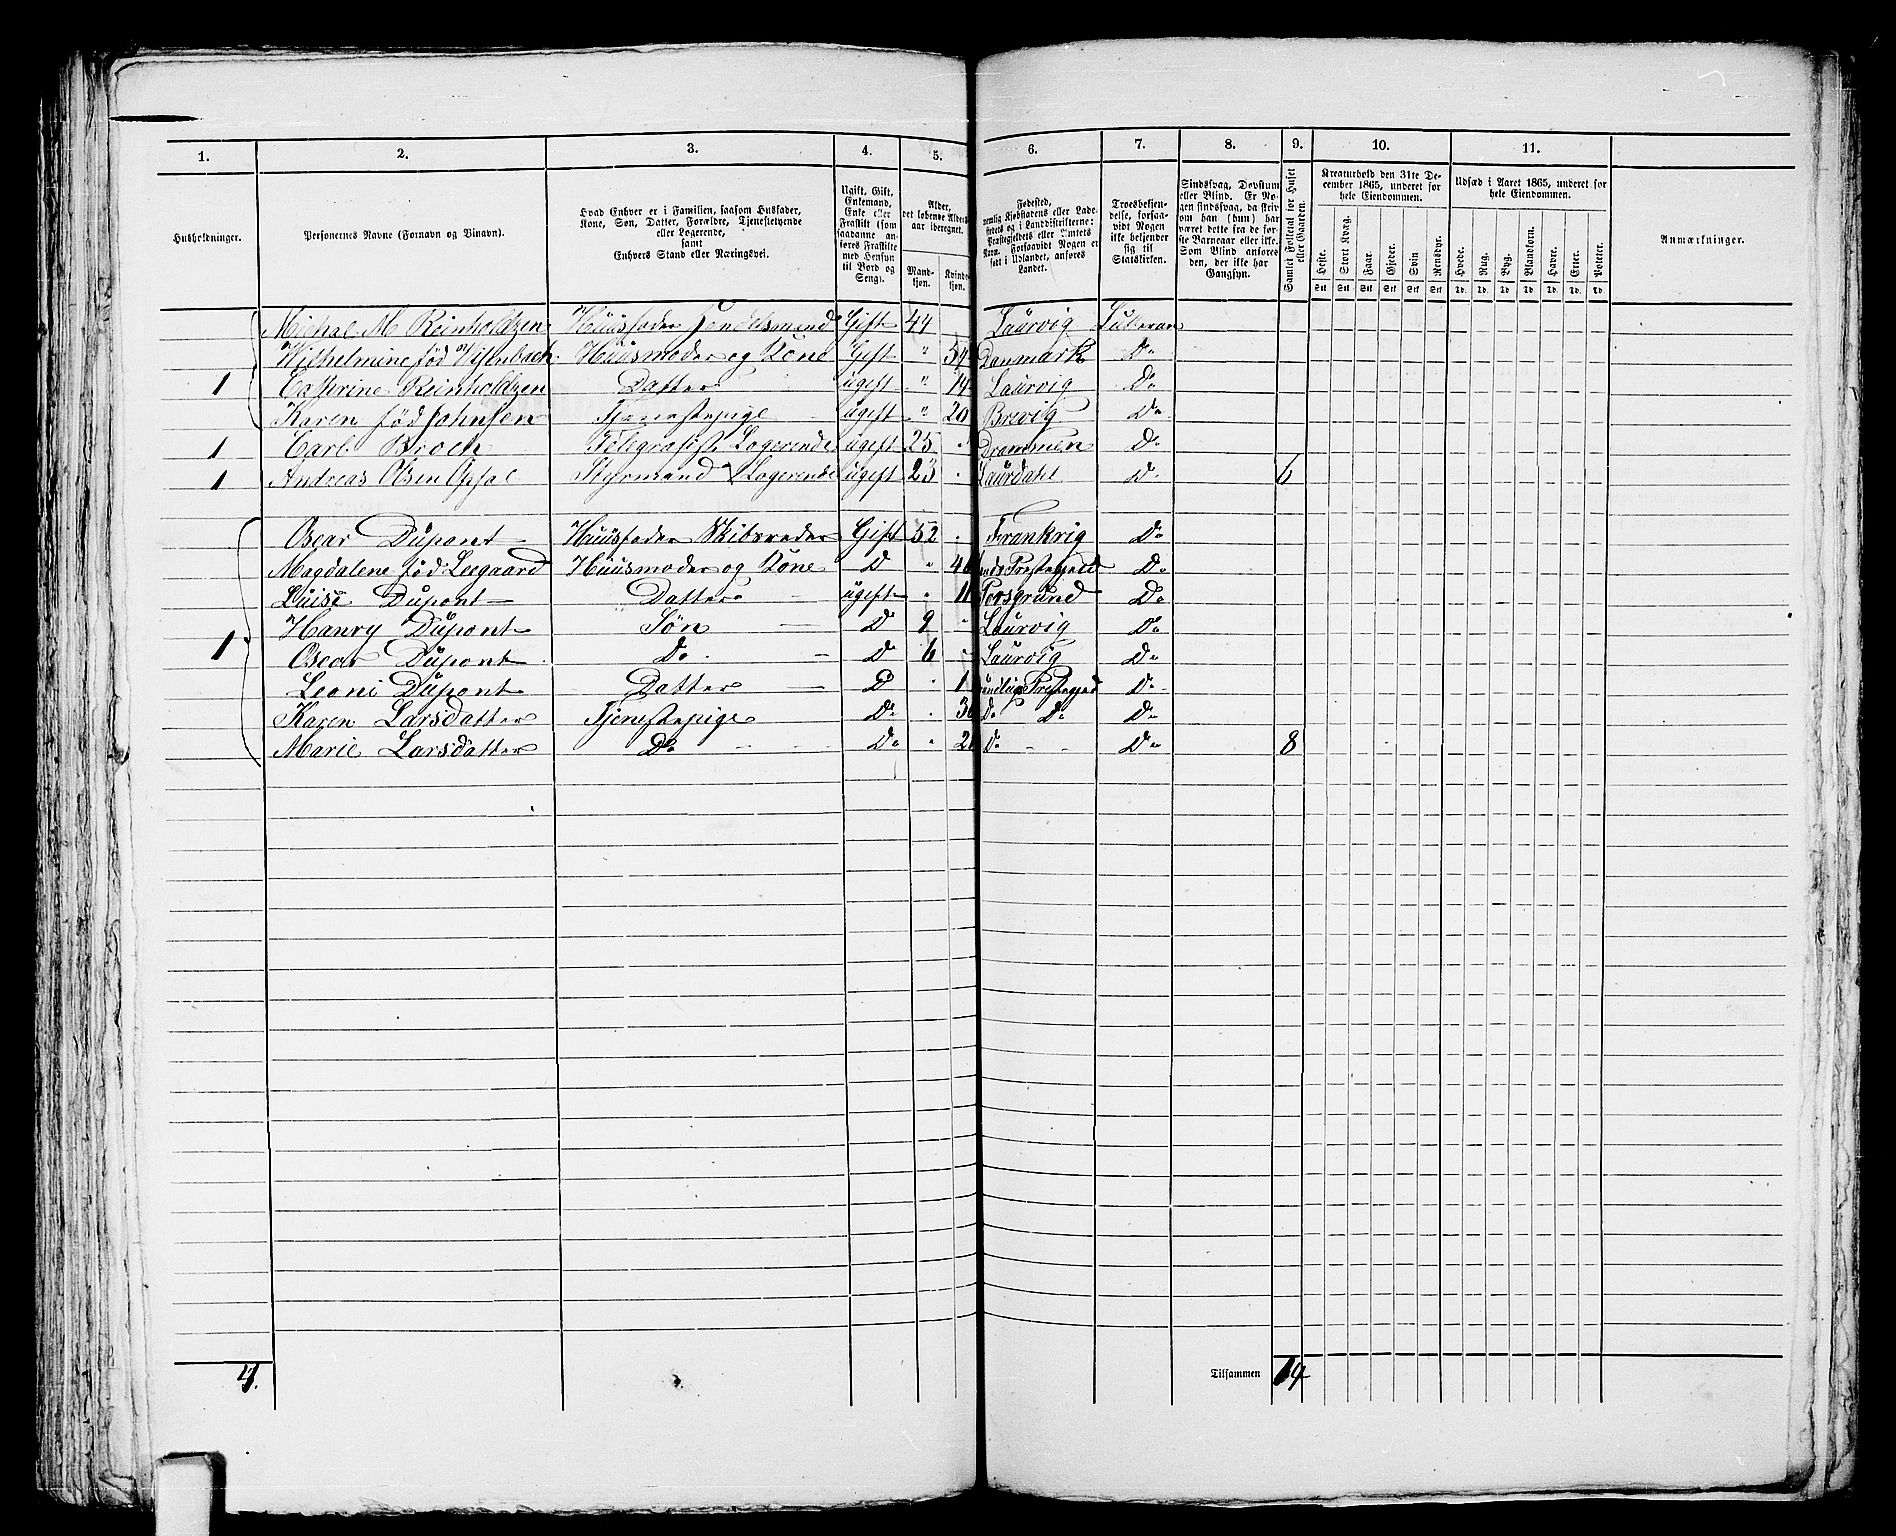 1. 2. 3. 4. 5. 6. 7. 8. 9. 10. 11.
Husholdninger.
Personernes Navne (Fornavn og Binavn).
Hvad Enhver er i Familien, saasom Husfader,
Kone, Søn, Datter, Forældre, Tjenestetyende
eller Logerende,
samt
Enhvers Stand eller Næringsvei.
Ugift, Gift,
Enkemand,
Enke eller
Fraskilt (som
saadanne an-
føres Fraskilte
med Hensyn
til Bord og
Seng).
Alder,
det løbende Alders-
aar iberegnet.
Mand-
kjøn.
Kvinde-
kjøn.
Fødested,
nemlig Kjøbstadens eller Lade-
stedets og i Landdistrikterne:
Præstegjeldets eller Amtets
Navn. Forsaavidt Nogen er
født i Udlandet, anføres
Landet.
Troesbekjen-
delse, forsaa-
vidt Nogen
ikke bekjender
sig til
Statskirken.
Sindssvag, Døvstum
eller Blind. Er No-
gen sindssvag, da skriv
om han (hun) har
været dette fra de før-
ste Barneaar eller ikke.
Som Blind anføres
den, der ikke har
Gangsyn.
Samlet Folketal for Huset
eller Gaarden.
Kreaturhold den 31te De-
cember 1865, underet for
hele Eiendommen.
Heste. Stort Kvæg. Faar. Gjeder. Svin Rensdyr.
Stk Stk Stk Stk Stk Stk
Udsæd i Aaret 1865, underet for
hele Eiendommen.
Hvede. Rug. Byg. Blandkorn. Havre. Erter. Poteter.
Td. Td. Td. Td. Td. Td. Td.
Anmærkninger.
Michal M Reinholdtzen Huusfader Handelsmand Gift 44 Laurvig Lutheran
Wilhelmine fød Huusmoder og Kone Gift " 54 Danmark Do
1 Cathrine Reinholdtzen Datter ugift " 14 Laurvig Do
Karen fød Johnsen Tjenestepige ugift " 20 Brevig Do
1 Carl Broch Telegrafist Logerende ugift 25 " Drammen Do
1 Andreas Olsen Opsal Styrmand Logerende ugift 23 Laurdahl Do 6
Oscar Dupont Huusfader Skibsreder Gift 52 Frankrig Do
Magdalene fød Leegaard Huusmoder og Kone D " 40 Præstegjeld Do
Luise Dupont Datter ugift " 11 Porsgrund Do
1 Hanry Dupont Søn D 9 Laurvig Do
Oscar Dupont Do D 6 Laurvig Do
Leoni Dupont Datter D " 1 Præstegjeld Do
Karen Larsdatter Tjenestepige Do " 3 Do Do Do
Marie Larsdatter Do Do " 2 Do Do 8
4. Tilsammen 14